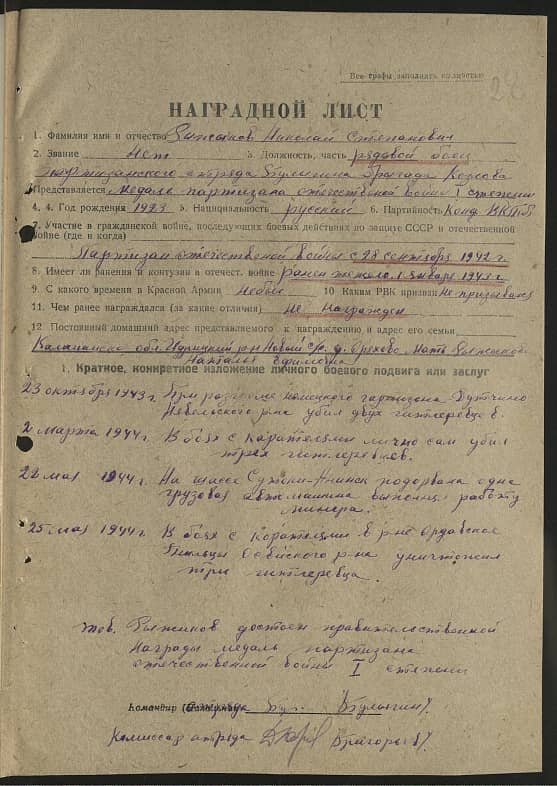 Все графы заполнять полностью
НАГРАДНОЙ ЛИСТ
1. Фамилия имя и отчество Рыжиков Николай Степанович
2. Звание Нет 3. Должность, часть рядовой боец
партизанского отряда Булыгина бригада
Представляется медаль партизана отечественой войны I степени
4. Год рождения 1923 5. Нациналность русский 6. Партийность Конд. ВКПб
7. Участие в гражданской войне, последующих боевых действиях по защите СССР и отечественной
войне (где и когда)
Партизан отечественой войны с 28 сентября 1942 г.
8. Имеет ли ранения и контузии в отечест. войне ранен тяжело 1 января 1943 г.
9. С какого времени в Красной Армии Небыл 10 Каким РВК призван Не призывался
11. Чем ранее награждался (за какие отличия) не награжден
12 Постоянный домашний адрес представляемого к награждению и адрес его семьи
обл. Идрицкий р-н Новый с/с д. Орехово Мать Рыжикова
Наталья Ефимовна
1. Краткое, конкретное изложение личного боевого подвига или заслуг
23 октября 1943 г. При разгроме немецкого гарнизона
Невельского р-на убил двух гитлеровцев.
2 марта 1944 г. В боях с карателями лично сам убил
трех гитлеровцев.
22 мая 1944 г. На шоссе подорвала одна
грузовая автомашина выполнял работу
минера.
25 мая 1944 г. В боях с карателями в р-не
р-на уничтожил
три гитлеровца.
тов. Рыжиков достоен правительственной
награды медаль партизана
отечественной войны I степени
Командир Булыгин
Комиссар отряда Григорьев